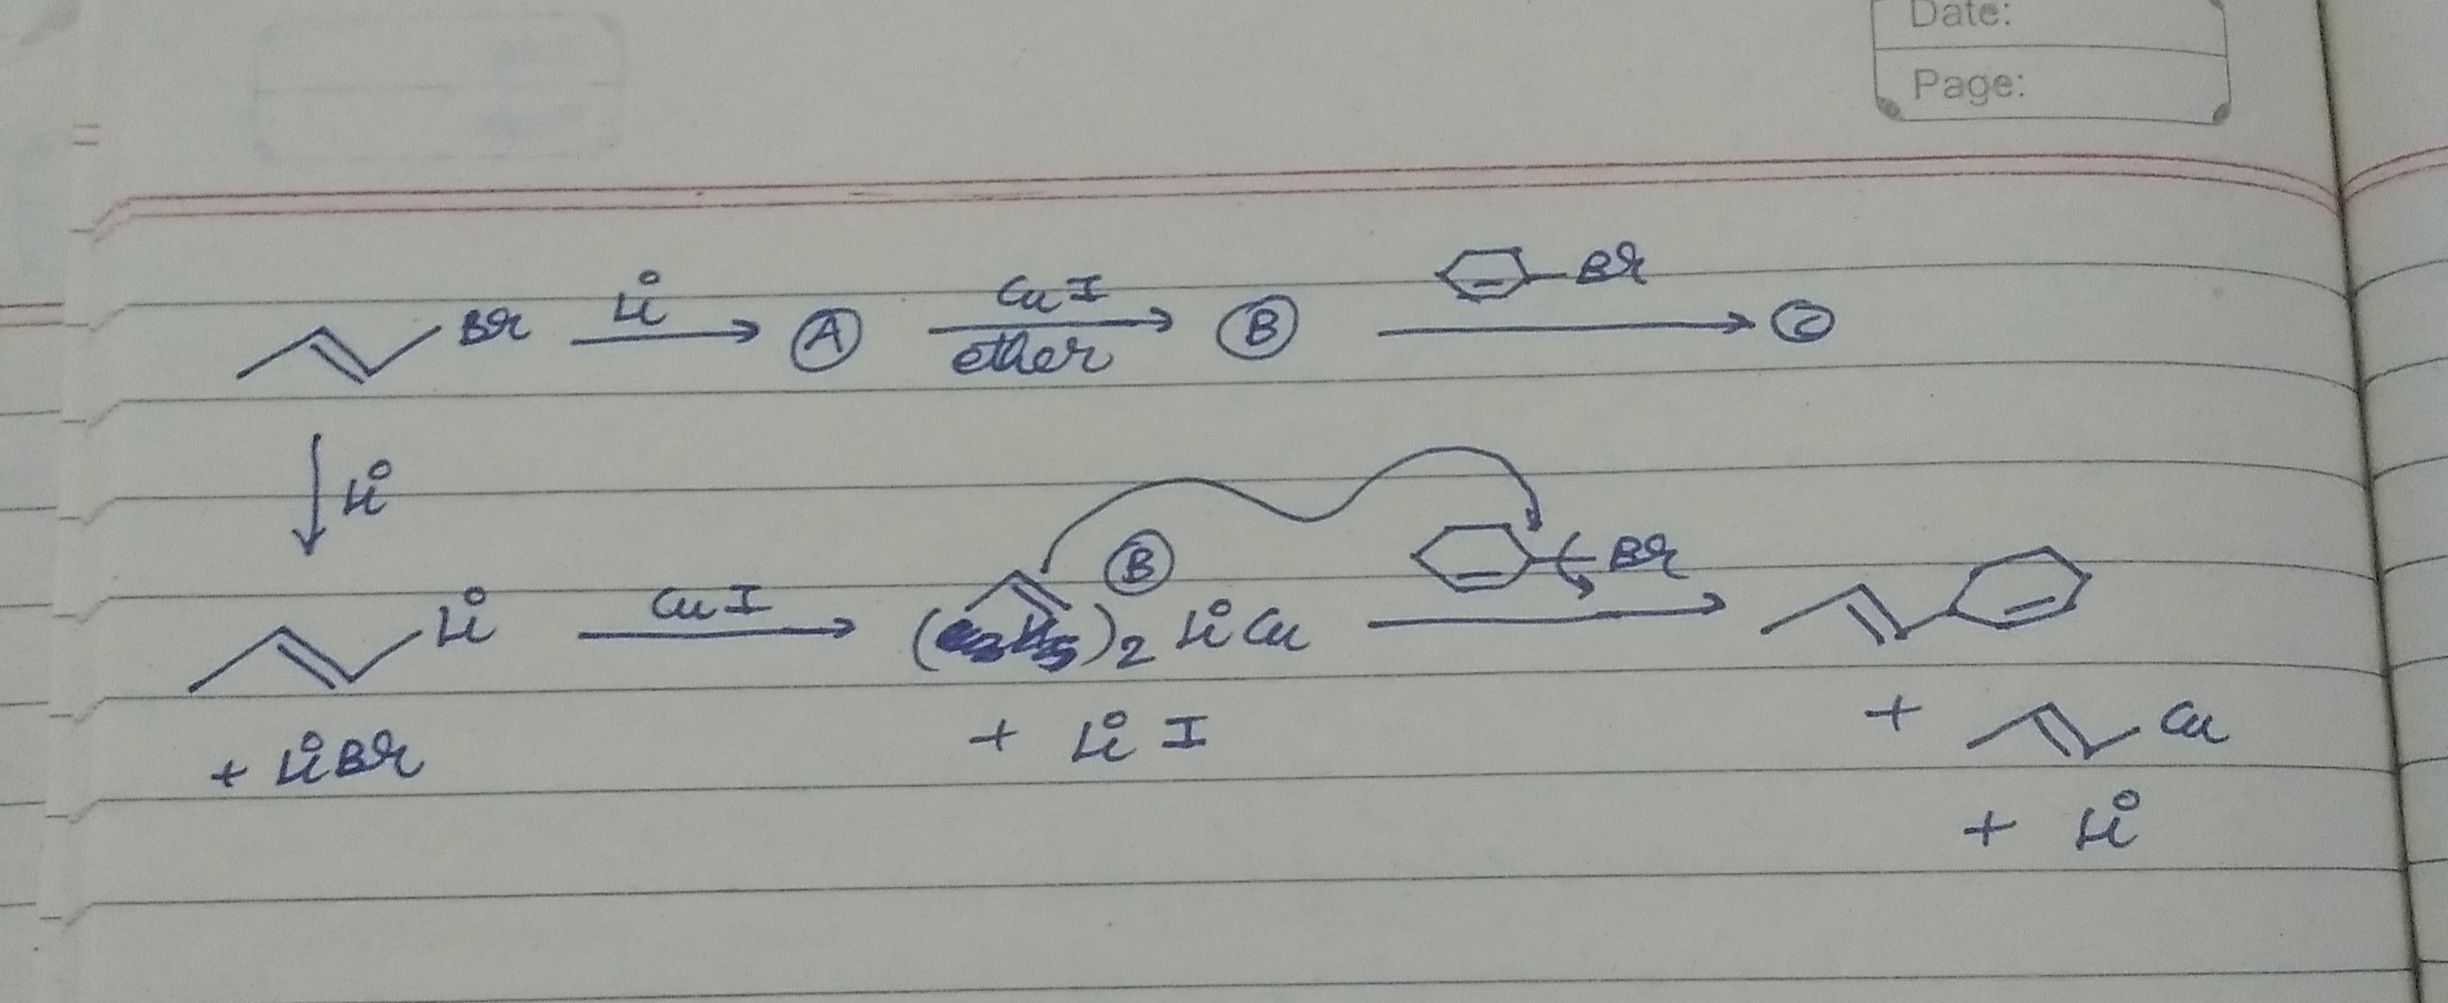 Date:
Page:
Br Li → Ⓐ CuI ether → Ⓑ Br → Ⓒ
↓ Li
Li CuI → ( )₂ LiCu Ⓑ Br →
+ LiBr + LiI + Cu
+ Li